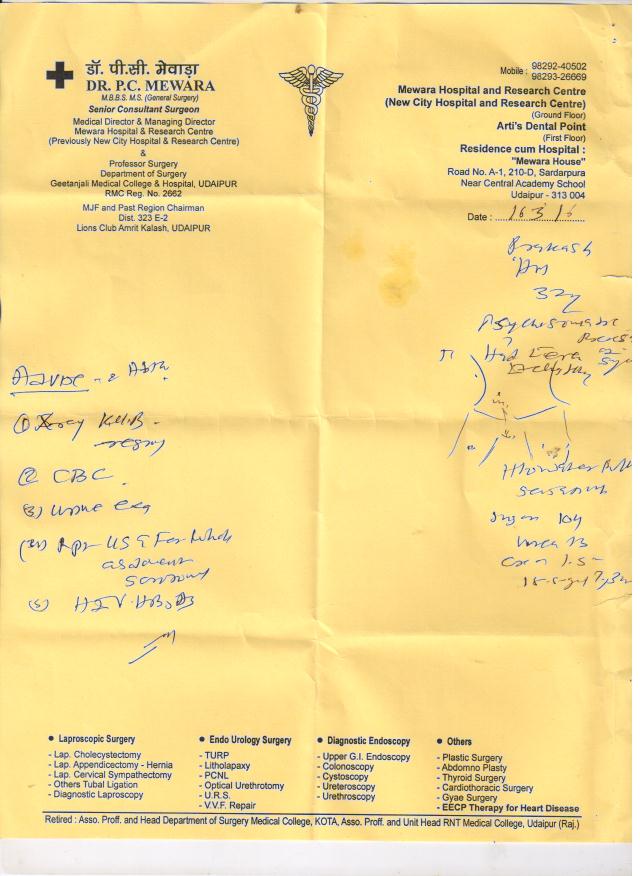 डॉ. पी.सी. मेवाड़ा
DR. P.C. MEWARA
M.B.B.S. M.S. (General Surgery)
Senior Consultant Surgeon
Medical Director & Managing Director
Mewara Hospital & Research Centre
(Previously New City Hospital & Research Centre)
&
Professor Surgery
Department of Surgery
Geetanjali Medical College & Hospital, UDAIPUR
RMC Reg. No. 2662
MJF and Past Region Chairman
Dist. 323 E-2
Lions Club Amrit Kalash, UDAIPUR
Mobile : 98292-40502
98293-26669
Mewara Hospital and Research Centre
(New City Hospital and Research Centre)
(Ground Floor)
Arti's Dental Point
(First Floor)
Residence cum Hospital :
"Mewara House"
Road No. A-1, 210-D, Sardarpura
Near Central Academy School
Udaipur - 313 004
Date : 16 3 16
Prakash
32y
Advice
① Xray KUB
② CBC
3) urine
USG For whole
5) HIV
● Laproscopic Surgery
- Lap. Cholecystectomy
- Lap. Appendictomy - Hernia
- Lap. Cervical Sympathectomy
- Others Tubal Ligation
- Diagnostic Laproscopy
● Endo Urology Surgery
- TURP
- Litholapaxy
- PCNL
- Optical Urethrotomy
- U.R.S.
- V.V.F. Repair
● Diagnostic Endoscopy
- Upper G.I. Endoscopy
- Colonoscopy
- Cystoscopy
- Ureteroscopy
- Urethroscopy
● Others
- Plastic Surgery
- Abdomno Plasty
- Thyroid Surgery
- Cardiothoracic Surgery
- Gyae Surgery
- EECP Therapy for Heart Disease
Retired : Asso. Proff. and Head Department of Surgery Medical College, KOTA, Asso. Proff. and Unit Head RNT Medical College, Udaipur (Raj.)